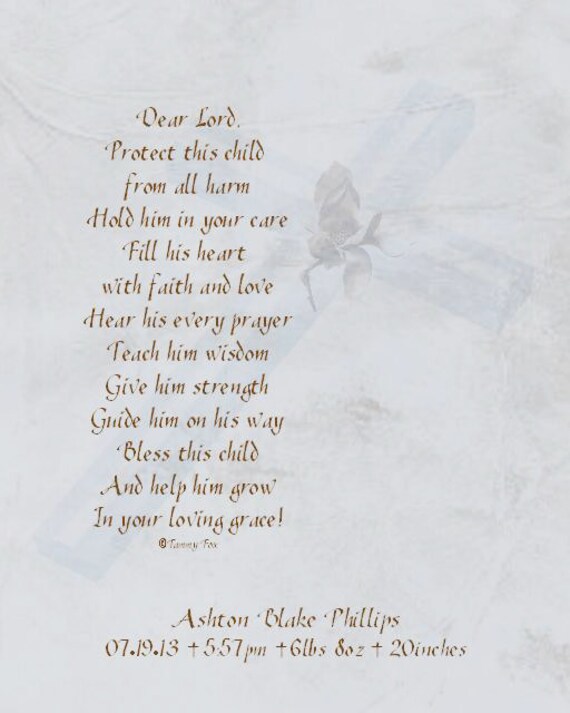 Dear Lord,
Protect this child
from all harm
Hold him in your care
Fill his heart
with faith and love
Hear his every prayer
Teach him wisdom
Give him strength
Guide him on his way
Bless this child
And help him grow
In your loving grace!
©Tammy Fox
Ashton Blake Phillips
07.19.13 †5:57pm †6lbs 8oz † 20inches